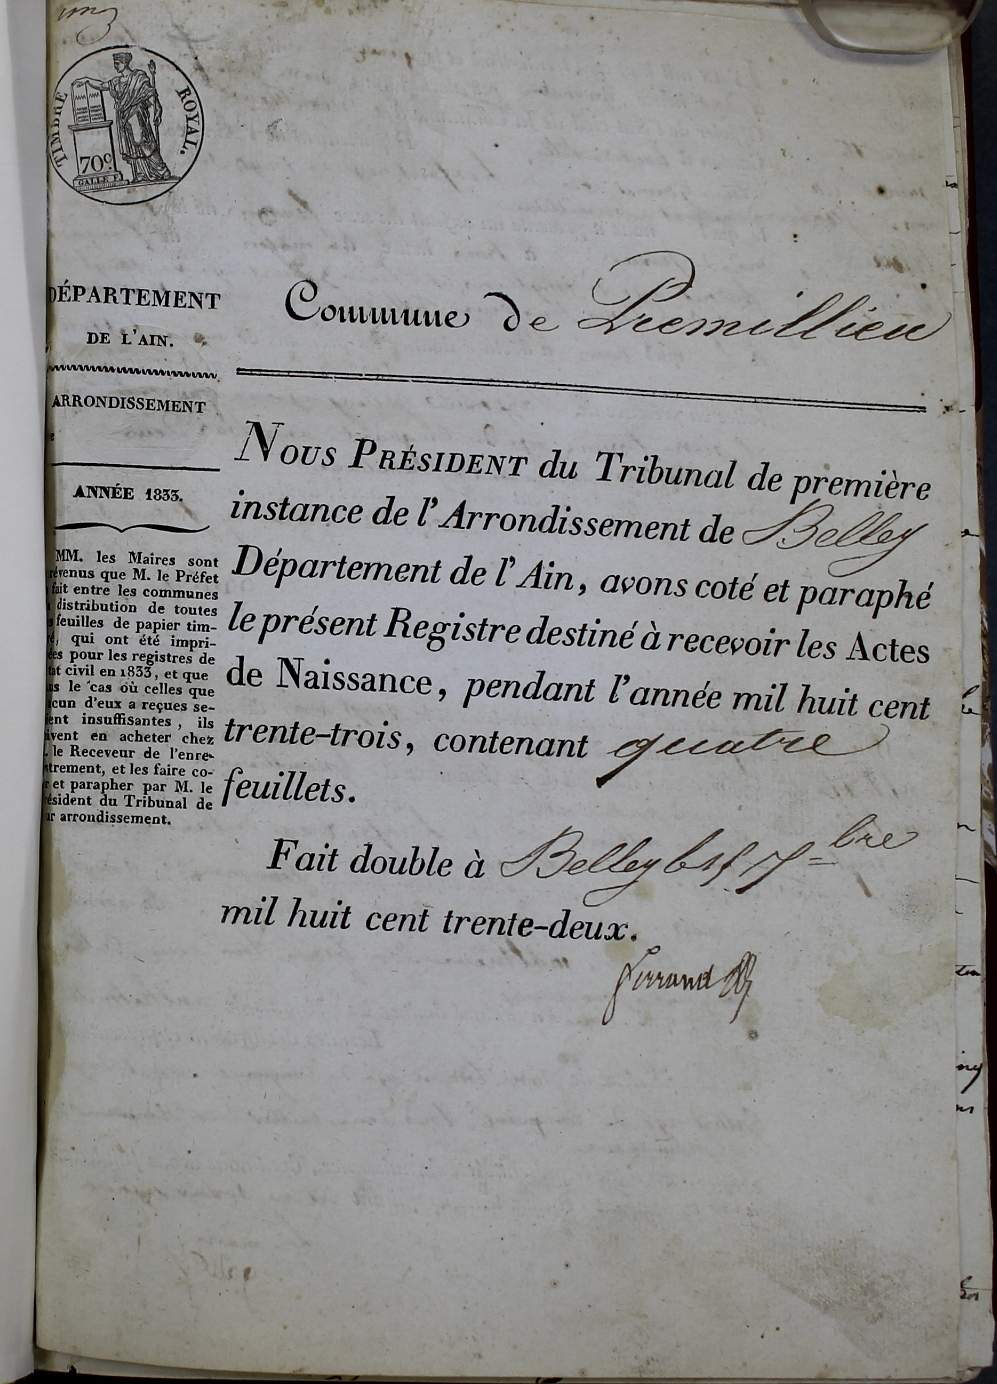 TIMBRE ROYAL.
70c.
GALLE F.
DÉPARTEMENT
DE L'AIN.
ARRONDISSEMENT
ANNÉE 1833.
MM. les Maires sont
évenus que M. le Préfet
fait entre les communes
distribution de toutes
feuilles de papier tim-
é, qui ont été impri-
ées pour les registres de
at civil en 1833, et que
s le cas où celles que
cun d'eux a reçues se-
ent insuffisantes, ils
ivent en acheter chez
le Receveur de l'enre-
trement, et les faire co-
r et parapher par M. le
ésident du Tribunal de
ur arrondissement.
Commune de Premillieu
NOUS PRÉSIDENT du Tribunal de première
instance de l'Arrondissement de Belley
Département de l'Ain, avons coté et paraphé
le présent Registre destiné à recevoir les Actes
de Naissance, pendant l'année mil huit cent
trente-trois, contenant quatre
feuillets.
Fait double à Belley 7bre
mil huit cent trente-deux.
Ferrand